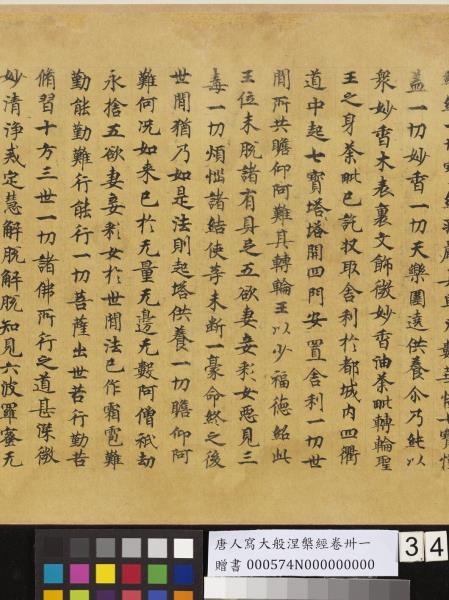 盖一切妙香一切天樂圍遶供養尒乃純以
衆妙香木表裏文飾微妙香油荼毗轉輪聖
王之身荼毗已訖収取舍利於都城内四衢
道中起七寶塔塔開四門安置舍利一切世
間所共瞻仰阿難其轉輪王以少福德紹此
王位未脫諸有具足五欲妻妾彩女惡見三
毒一切煩惱諸結使等未斷一豪命終之後
世間猶乃如是法則起塔供養一切瞻仰阿
難何況如來已於无量无邊无數阿僧祇劫
永捨五欲妻妾彩女於世間法已作霜雹難
勤能勤難行能行一切菩薩出世苦行勤苦
脩習十方三世一切諸佛所行之道甚深微
妙清淨戒定慧解脫解脫知見六波羅蜜无
唐人寫大般涅槃經卷卅一
贈書 000574N000000000
34